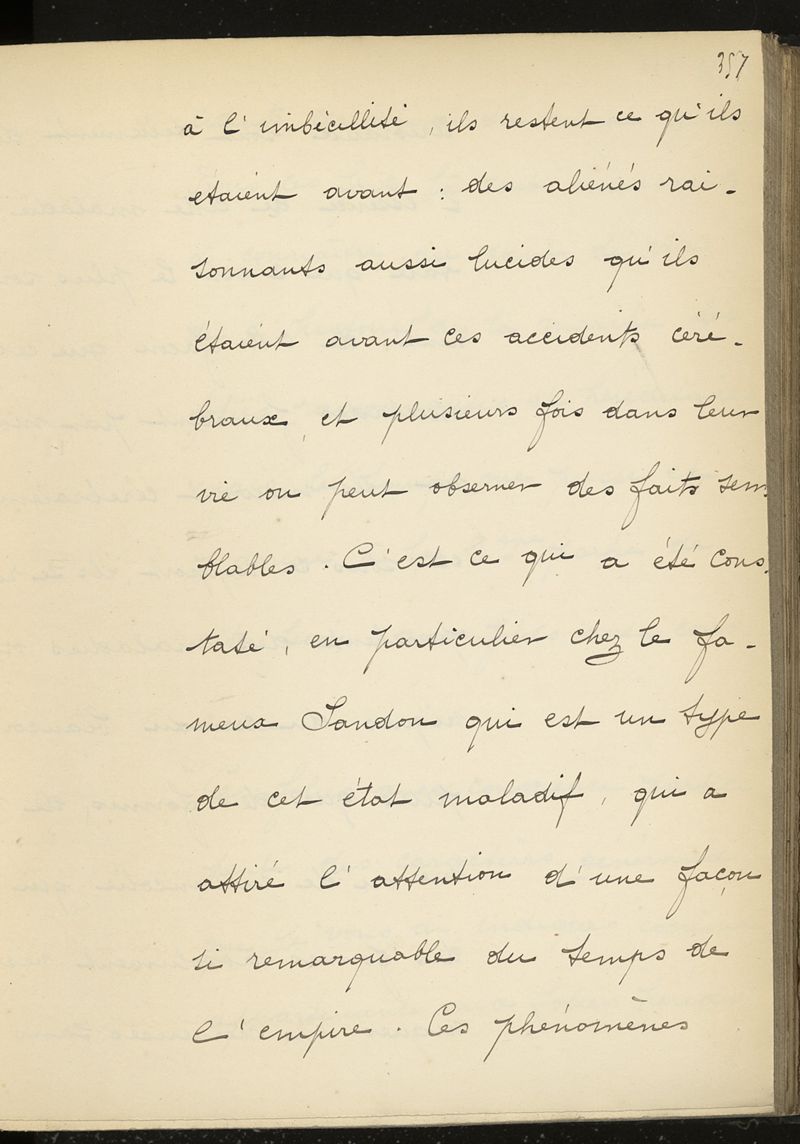 357
à l'imbécillité, ils restent ce qu'ils
étaient avant : des aliénés rai-
sonnants aussi lucides qu'ils
étaient avant ces accidents céré-
braux, et plusieurs fois dans leur
vie on peut observer des faits sem
blables. C'est ce qui a été cons-
taté, en particulier chez le fa-
meux Sandon qui est un type
de cet état maladif, qui a
attiré l'attention d'une façon
si remarquable du temps de
l'empire. Ces phénomènes